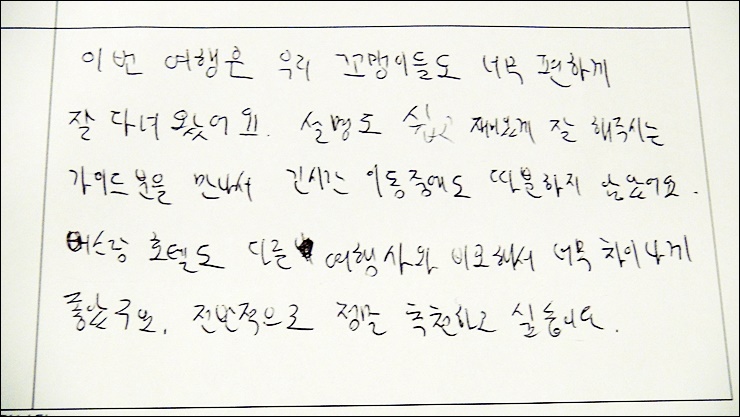 이번 여행은 우리 꼬맹이들도 너무 편하게
잘 다녀왔어요. 설명도 쉽고 재미있게 잘 해주시는
가이드분을 만나서 긴시간 이동중에도 따분하지 않았어요.
버스랑 호텔도 다른 여행사와 비교해서 너무 차이나게
좋았구요. 전반적으로 정말 추천하고 싶습니다.